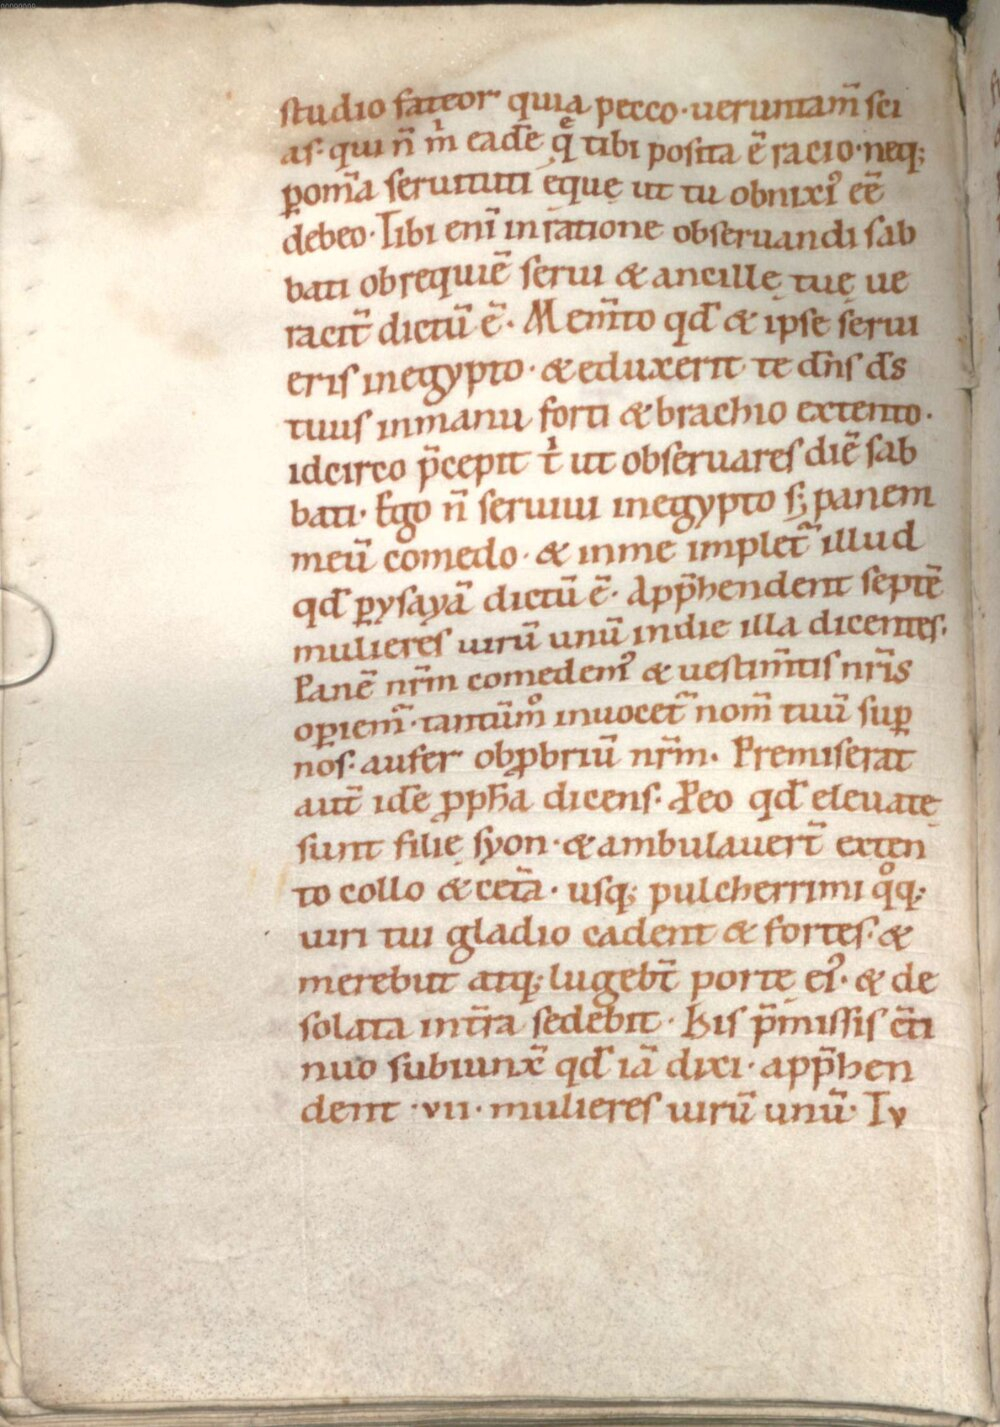 studio fateor quia pecco· ueruntam̄ sci
as· qui n̄ m̍ ead̄e q̄ᵉ tibi posita ē racio· neq;
ꝑom̄a seruituti ęque ut tu obnixꝰ ēē
debeo· Tibi enī inratione obseruandi sab
bati ob requiē serui & ancillę tuę ue
racit̄ dictū ē· Mem̄to qd̄ & ipse serui
eris inegypto· & eduxerit te dn̄s d̄s
tuus inmanu forti & brachio extento·
idcirco p̄cepit t̍ ut obseruares diē sab
bati· Ego n̄ seruiui inegypto s; panem
meū comedo· & inme implet̄ illud
qd̄ ꝑysayā dictū ē· App̄hendent septē
mulieres uirū unū indie illa dicentes·
Panē nr̄m comedemꝰ & uestim̄tis nr̄is
oꝑiem̄· tantūmͦ inuocet̄ nom̄ tuū suꝑ
nos· aufer obꝓbriū nr̄m· Premiserat
aut̄ id̄e ꝓph̄a dicens· Peo qd̄ eleuatę
sunt filię syon· & ambulauert̄ exten
to collo & cet̄a· usq; pulcherrimi qͦq;
uiri tui gladio cadent & fortes· &
merebut atq; lugebt̄ portę eiꝰ· & de
solata int̄ra sedebit· His p̄missis c̄ti
nuo subiunx̄ qd̄ iā dixi· app̄hen
dent ·vii· mulieres uirū unū· Iv